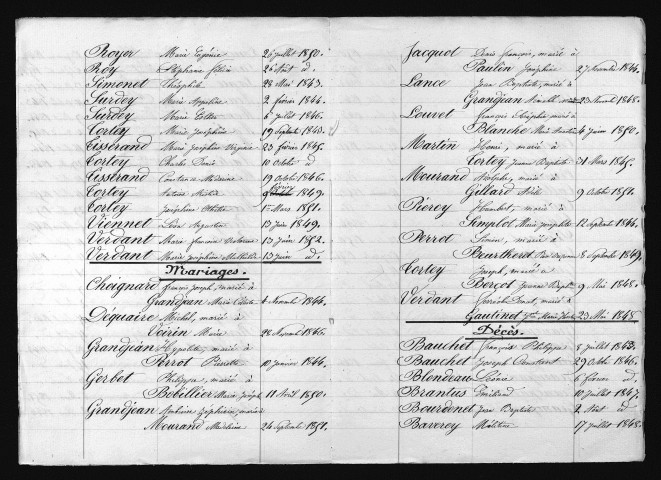 Royer Marie Eugénie 26 juillet 1850.
Roy Stéphanie 26 Août d
Simonet Théophile 28 Mai 1843.
Surdey Marie 2 février 1844.
Surdey Marie 6 juillet 1846.
Corley Marie Joséphine 19 Septembre 1843.
Cisserand Marie Joséphine Virginie 23 février 1845.
Corley Charles Denis 10 Octobre d
Cisstrand Constance 19 Octobre 1846.
Corley 1849.
Corley Joséphine 1er Mars 1851.
Viennet Léon Augustin 13 Juin 1849.
Verdant Marie 13 Juin 1852.
Verdant Marie Joséphine Mathilde 13 Juin d.
Mariages.
Choignard françois Joseph, marié à
Grandjean Marie 4 Novembre 1844.
Dequaire Michel, marié à
Voirin Marie 28 Novembre 1846.
Grandjean Hypolite, marié à
Perrot Pierrette 10 Janvier 1844.
Gerbet Philippe, marié à
Bobellier Marie Joseph 11 Avril 1850.
Grandjean marié à
Mourand 24 Septembre 1851.
Jacquot Denis françois, marié à
Paulin Joséphine 27 Novembre 1844.
Lance Jean Baptiste, marié à
Grandjean 23 Novembre 1848.
Louvet françois marié à
Blanche Marie 4 Juin 1850.
Martin marié à
Corley Jeanne Baptiste 31 Mars 1845.
Mourand Adolphe, marié à
Gillard Adèle 9 Octobre 1851.
Pierey marié à
Simplot Marie 12 Septembre 1844.
Perrot Simon, marié à
8 Septembre 1849.
Corley Joseph, marié à
Berçot Jeanne 9 Mai 1848.
Verdant marié à
Gautinet 23 Mai 1848
Décès.
Bauchet françois Philippe 8 juillet 1843.
Bauchet Joseph Constant 29 Octobre 1846.
Blondeau 6 février d.
Brantus 10 juillet 1847.
Bourdenet Jean Baptiste 2 Août d
Baverey 17 juillet 1848.